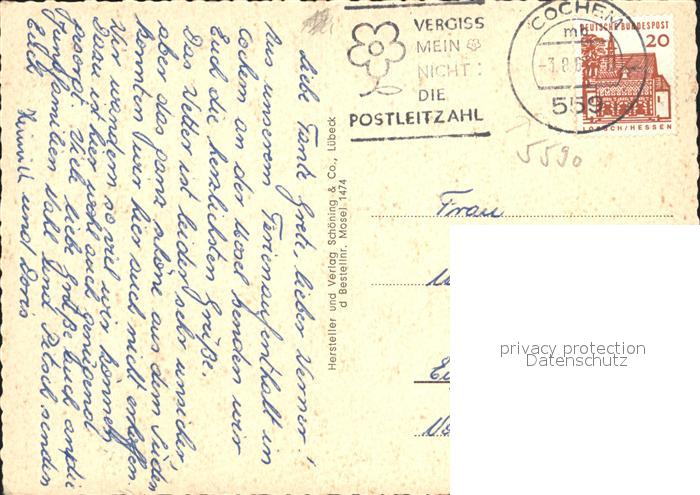 Liebe Tante Grete, lieber Werner!
Aus unserem Ferienaufenthalt in
Cochem an der Mosel senden wir
Euch die herzlichsten Grüße.
Das Wetter ist leider sehr unsicher
aber das ganz schöne aus dem Süden
konnten wir hier auch nicht erhoffen.
Wir wandern so viel wir können
Dazu ist hier wohl auch genügend
gesorgt. Viele liebe Grüße auch an die
Familien Hall und senden
Euch
Heinrich und Doris
Hersteller und Verlag Schöning & Co., Lübeck
d Bestellnr. Mosel 1474
VERGISS
MEIN
NICHT:
DIE
POSTLEITZAHL
COCHEM
mb
-3.8.6
559
DEUTSCHE BUNDESPOST
20
LORSCH/HESSEN
5590
Frau
privacy protection
Datenschutz